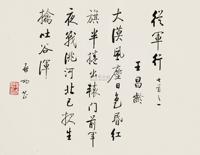 從軍行 七首之一
王昌齡
大漠風塵日色昏紅
旗半捲出轅門前軍
夜戰洮河北已報生
擒吐谷渾
啟功書